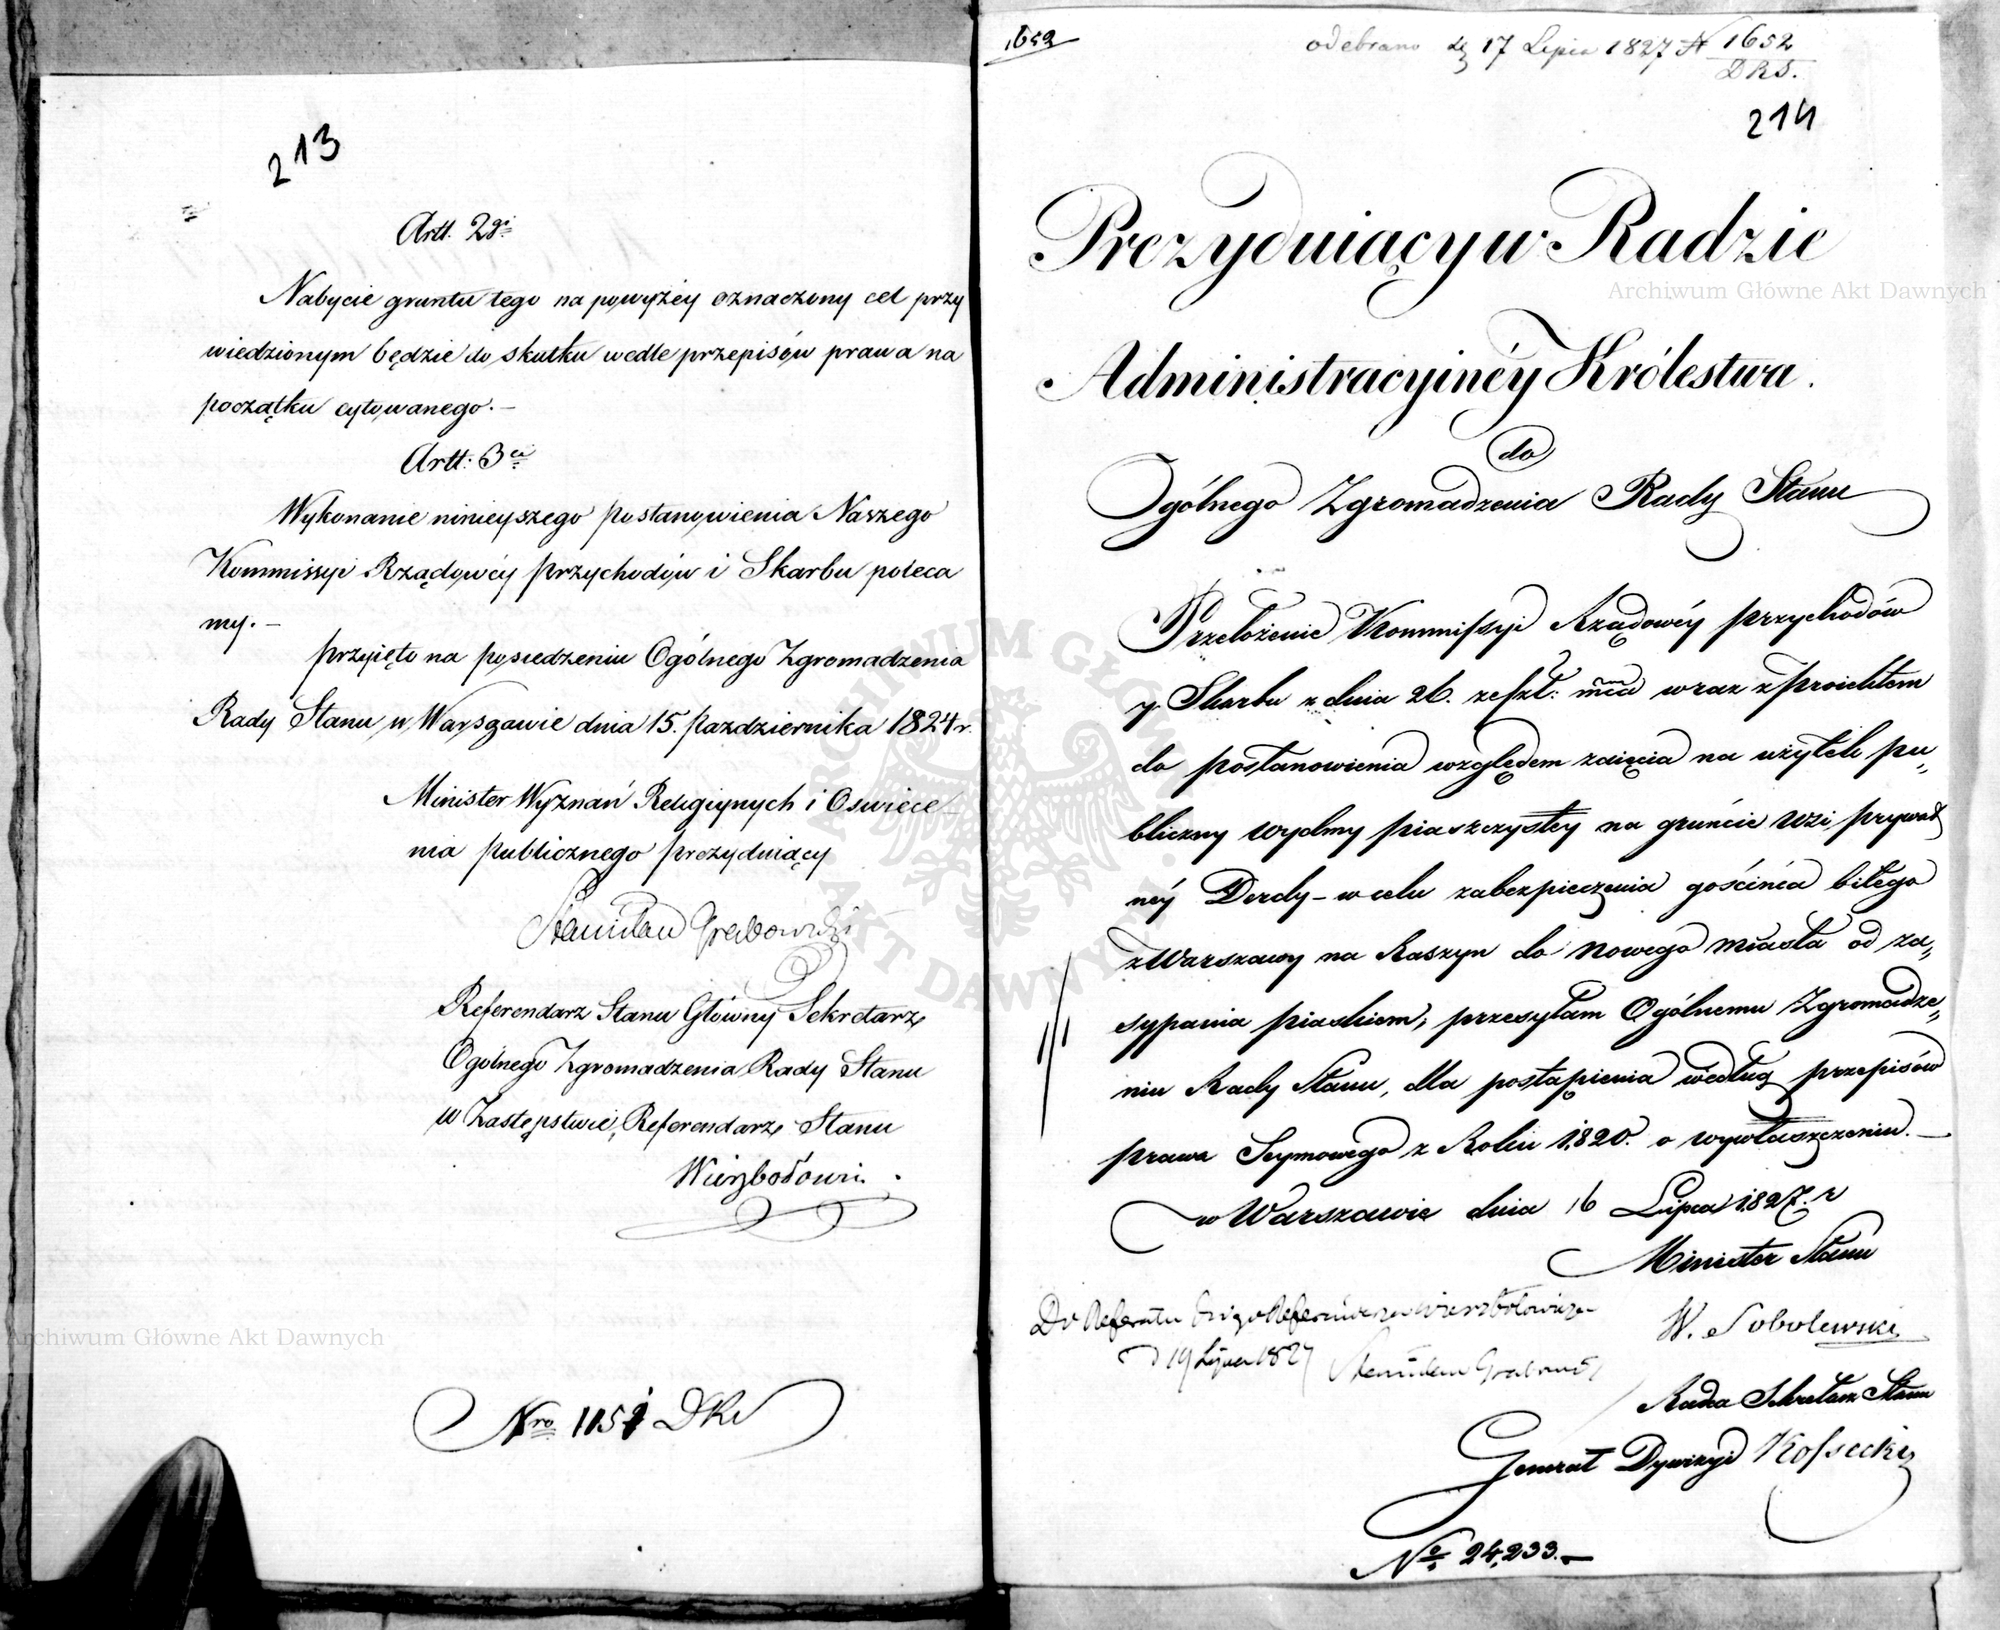 213
Artt. 2gi
Nabycie gruntu tego na powyżéy oznaczony cel przy
wiedzionym będzie do skutku wedle przepisów prawa na
początku cytowanego. —
Artt: 3ci
Wykonanie ninieyszego postanowienia Naszego
Kommissyi Rządowéy przychodów i Skarbu poleca
my. —
przyięto na posiedzeniu Ogólnego Zgromadzenia
Rady Stanu w Warszawie dnia 15. Pazdziernika 1824 r.
Minister Wyznań Religiynych i Oswiece
nia publicznego prezyduiący
Stanisław Grabowski
Referendarz Stanu Główny Sekretarz
Ogólnego Zgromadzenia Rady Stanu
w Zastępstwie, Referendarz Stanu
Wierzbołowi.
Nro 1151 DKS
1652
odebrano d. 17 Lipca 1827 N 1652
DKS.
214
Prezyduiący w Radzie
Administracyinéy Królestwa.
do
Ogólnego Zgromadzenia Rady Stanu
Przełożenie Kommissyi Rządowéy przychodów
y Skarbu z dnia 26. zeszł: mca wraz z proiektem
do postanowienia względem zaięcia na użytek pu„
bliczny wydmy piaszczystéy na gruncie wsi prywat
néy Derdy – w celu zabezpieczenia gościńca bitego
z Warszawy na Raszyn do Nowego miasta od za„
sypania piaskiem, przesyłam Ogólnemu Zgromadze„
niu Rady Stanu, dla postąpienia według przepisów
prawa Seymowego z Roku 1820. o wywłaszczeniu. —
w Warszawie dnia 16 Lipca 1827. r
Minister Stanu
Do Referatu Referendarza Wierzbołowicza
W. Sobolewski
d 19 Lipca 1827 Stanisław Grabowski
Radca Sekretarz Stanu
Generał Dywizyi Kossecki
No 24,233. —
Archiwum Główne Akt Dawnych
Archiwum Główne Akt Dawnych
ARCHIWUM GŁÓWNE AKT DAWNYCH